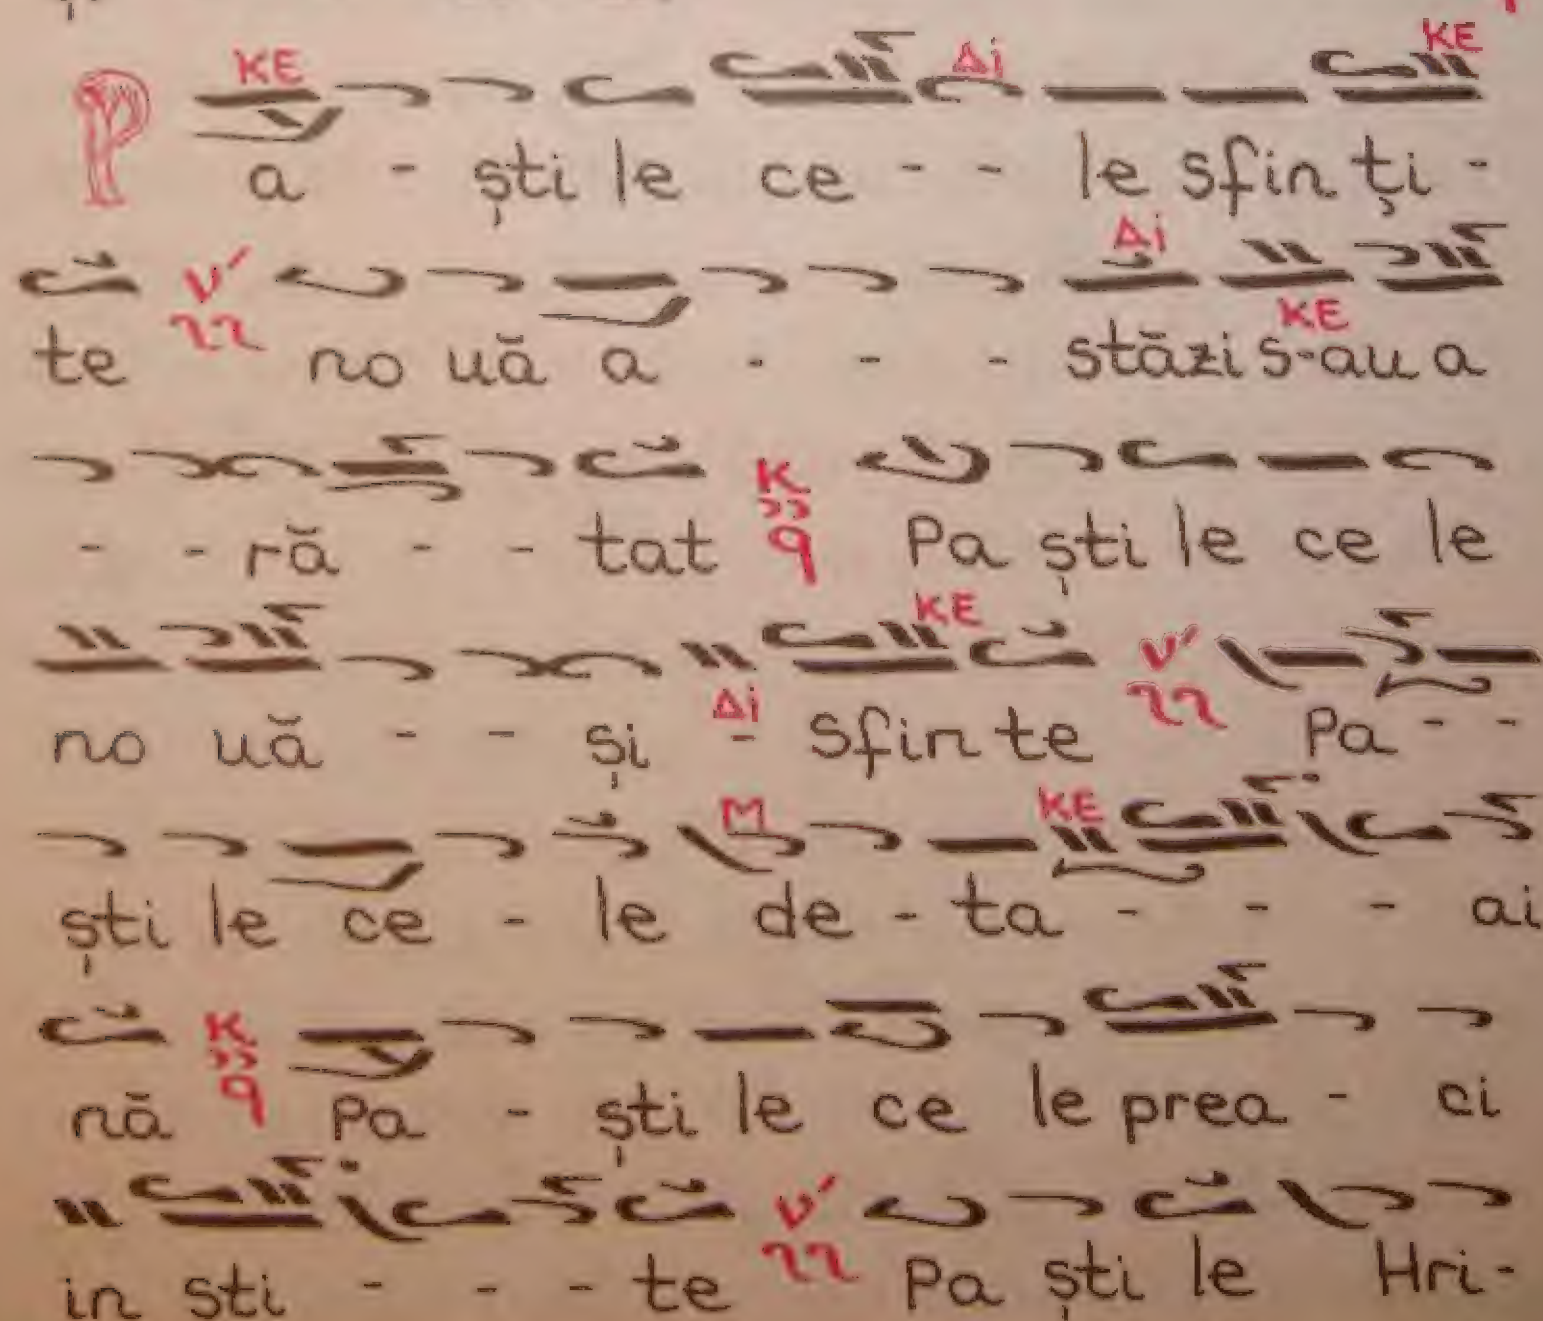 KE Δi KE
Pa - ști le ce - - le sfin ți -
Δi
te ν´ no uă a - - - stăzi s-au a
KE
- - ră - - tat K q Pa ști le ce le
KE
no uă - - și - sfin te ν´ Pa - -
Δi
M KE
ști le ce - le de - ta - - - ai
nă K q Pa - ști le ce le prea - ci
in sti - - - te ν´ Pa ști le Hri -